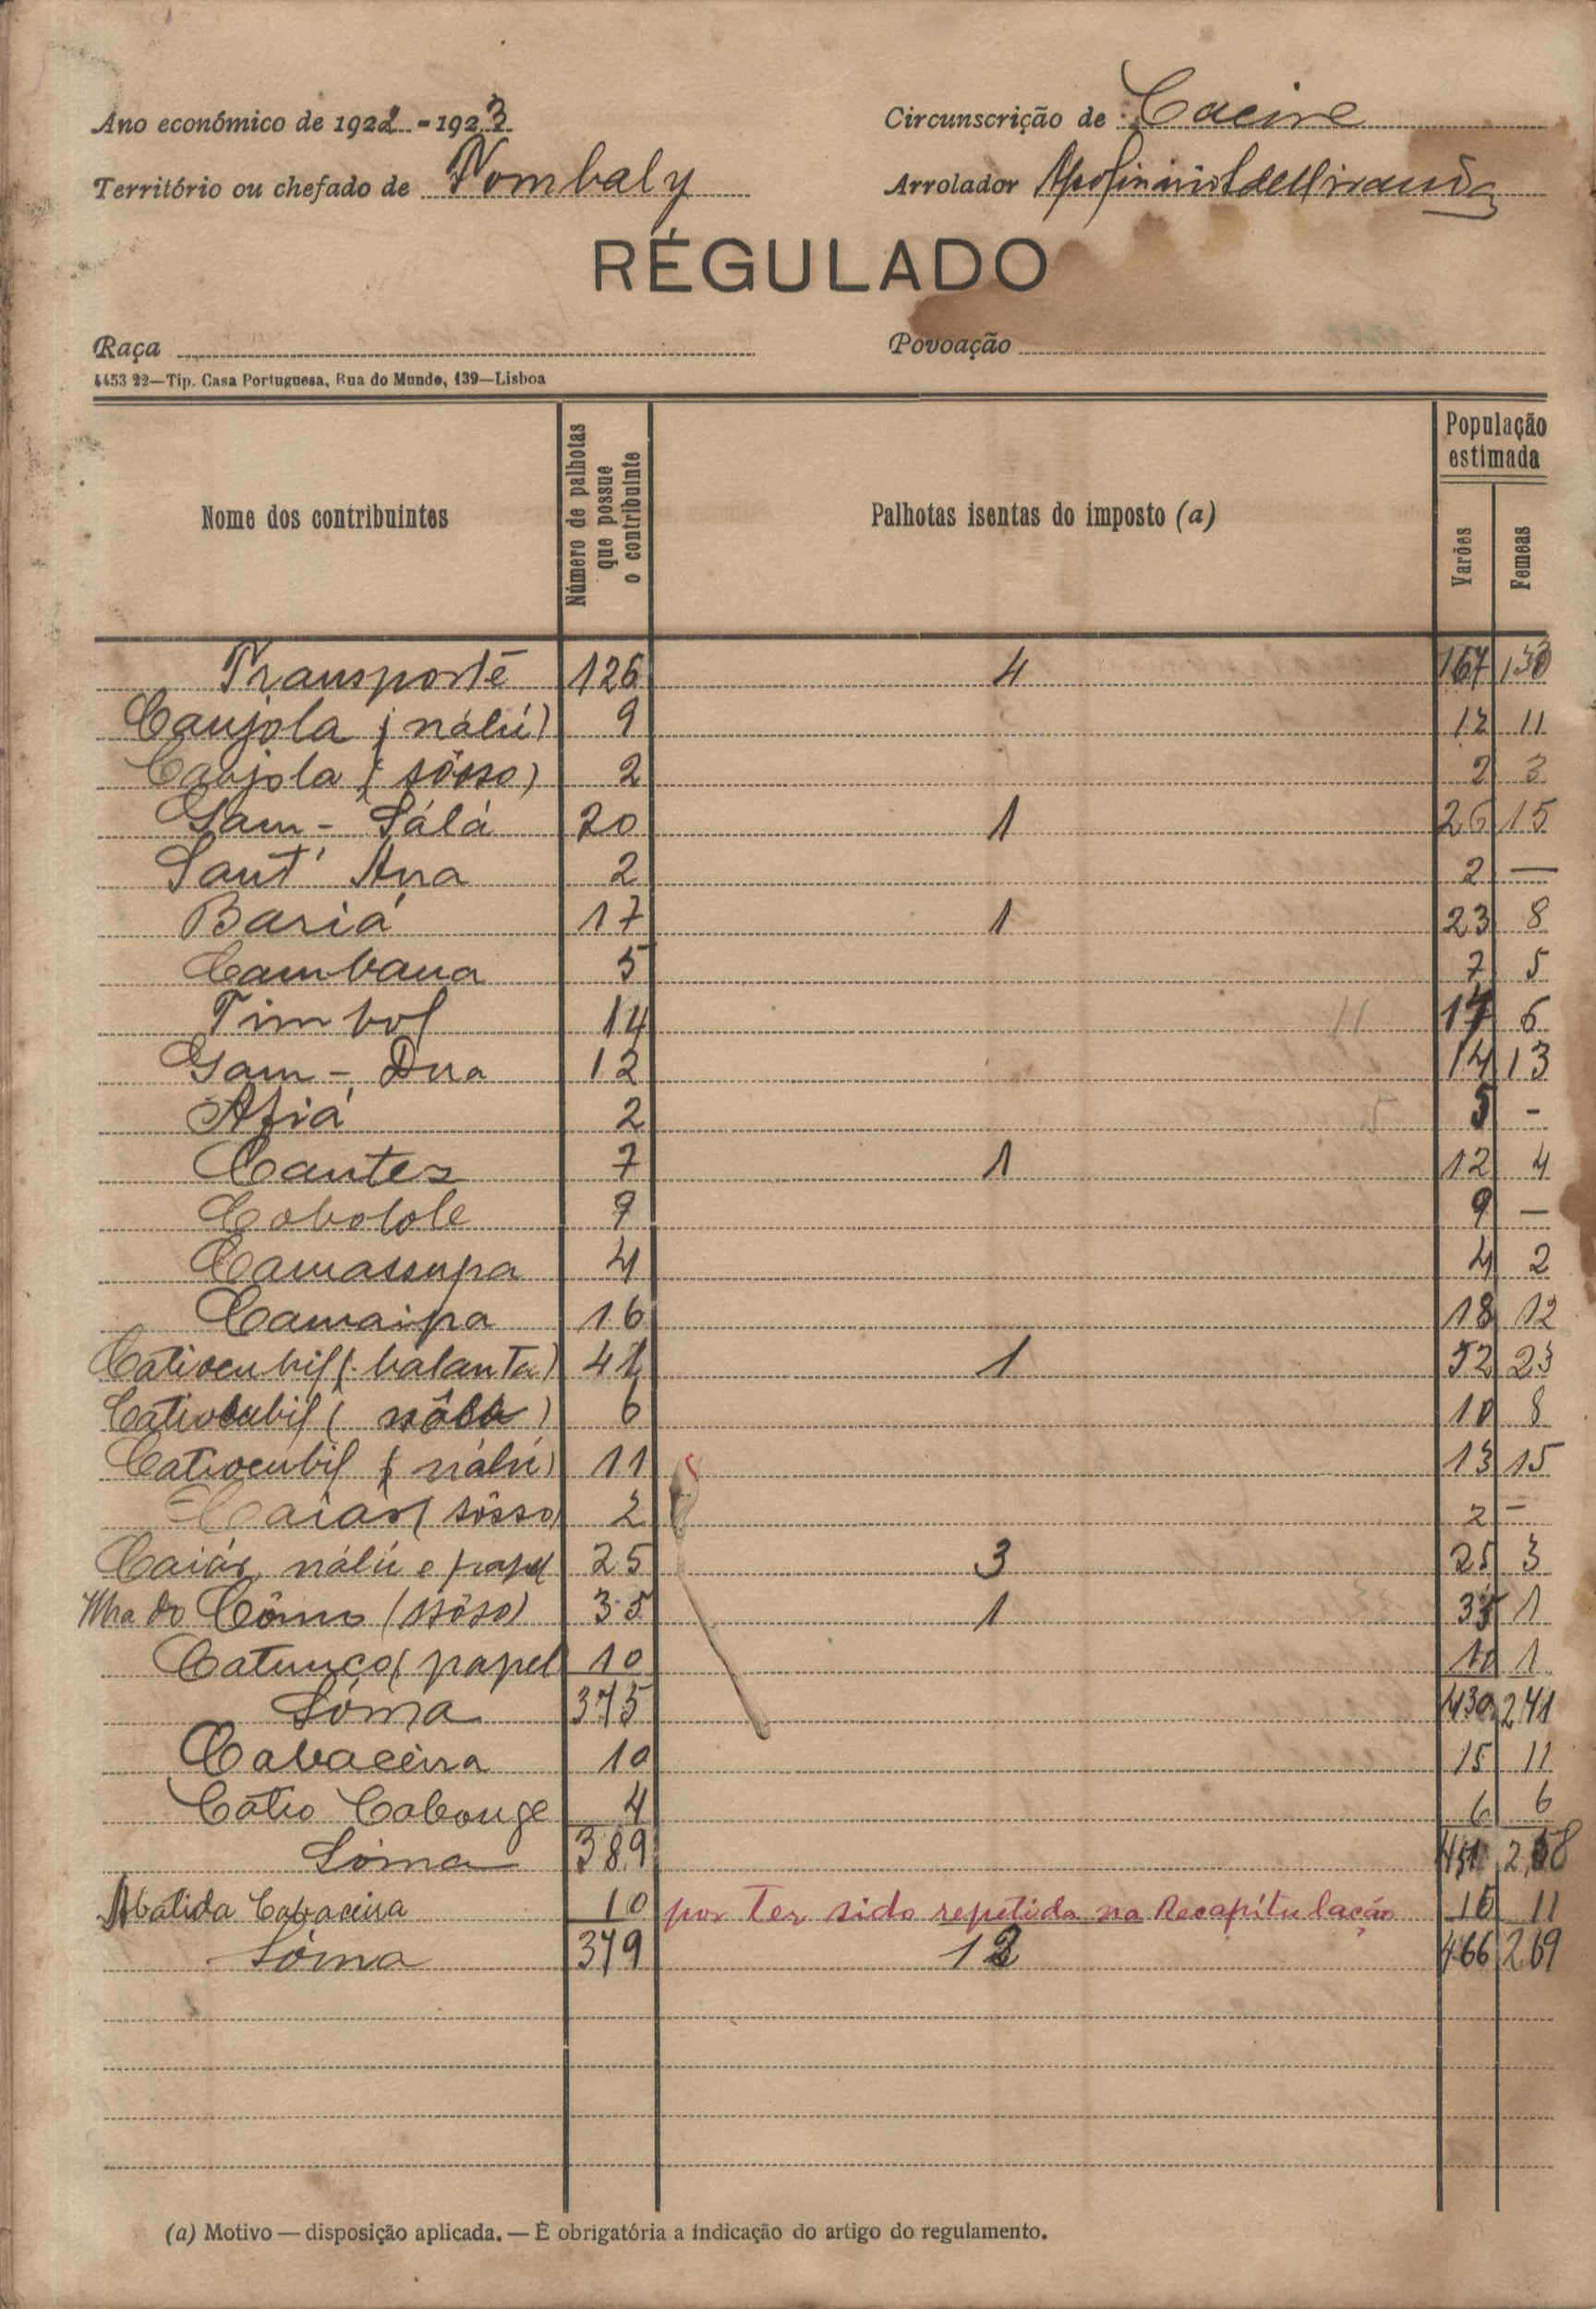 Ano económico de 1922-1923 Circunscrição de Cacine
Território ou chefado de Tombaly Arrolador de Miranda
RÉGULADO
Raça Povoação
4453 22—Tip. Casa Portuguesa, Rua do Mundo, 139—Lisboa
Nome dos contribuintes Número de palhotas que possue o contribuinte Palhotas isentas do imposto (a) População estimada Varões Femeas
Transporte 126 4 167 130
Caujola (nálú) 9 12 11
Caujola (sôsso) 2 2 3
Gam-Sálá 20 1 26 15
Sant'Ana 2 2 —
Bariá 17 1 23 8
Cambaua 5 7 5
Timbol 14 17 6
Gam-Dua 12 14 13
Afiá 2 5 -
Cantez 7 1 12 4
Cobolole 9 9 —
Camassupa 4 4 2
Camaipa 16 18 12
Catiocubil (balanta) 41 1 52 23
Catiocubil ( ) 6 10 8
Catiocubil (nálú) 11 13 15
Caiár (sôsso) 2 2 -
Caiár, nálú e papel 25 3 25 3
Ilha do Cômo (sôso) 35 1 35 1
Catunco (papel 10 10 1
Sôma 375 430 241
Cabaceira 10 15 11
Catio Cabonge 4 6 6
Sôma 389 451 258
Abatida Cabaceira 10 por ter sido repetida na Recapitulação 15 11
Sôma 379 12 466 269
(a) Motivo — disposição aplicada. — É obrigatória a indicação do artigo do regulamento.